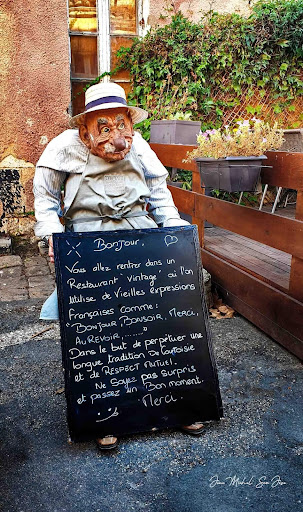 Bonjour,
Vous allez rentrer dans un
Restaurant "Vintage" où l'on
Utilise de Vieilles expressions
Françaises comme:
"Bonjour, Bonsoir, Merci,
Au Revoir, ......."
Dans le but de perpétuer une
longue tradition de Courtoisie
et de RESPECT MUTUEL.
Ne Soyez pas Surpris
et passez un Bon moment.
Merci.